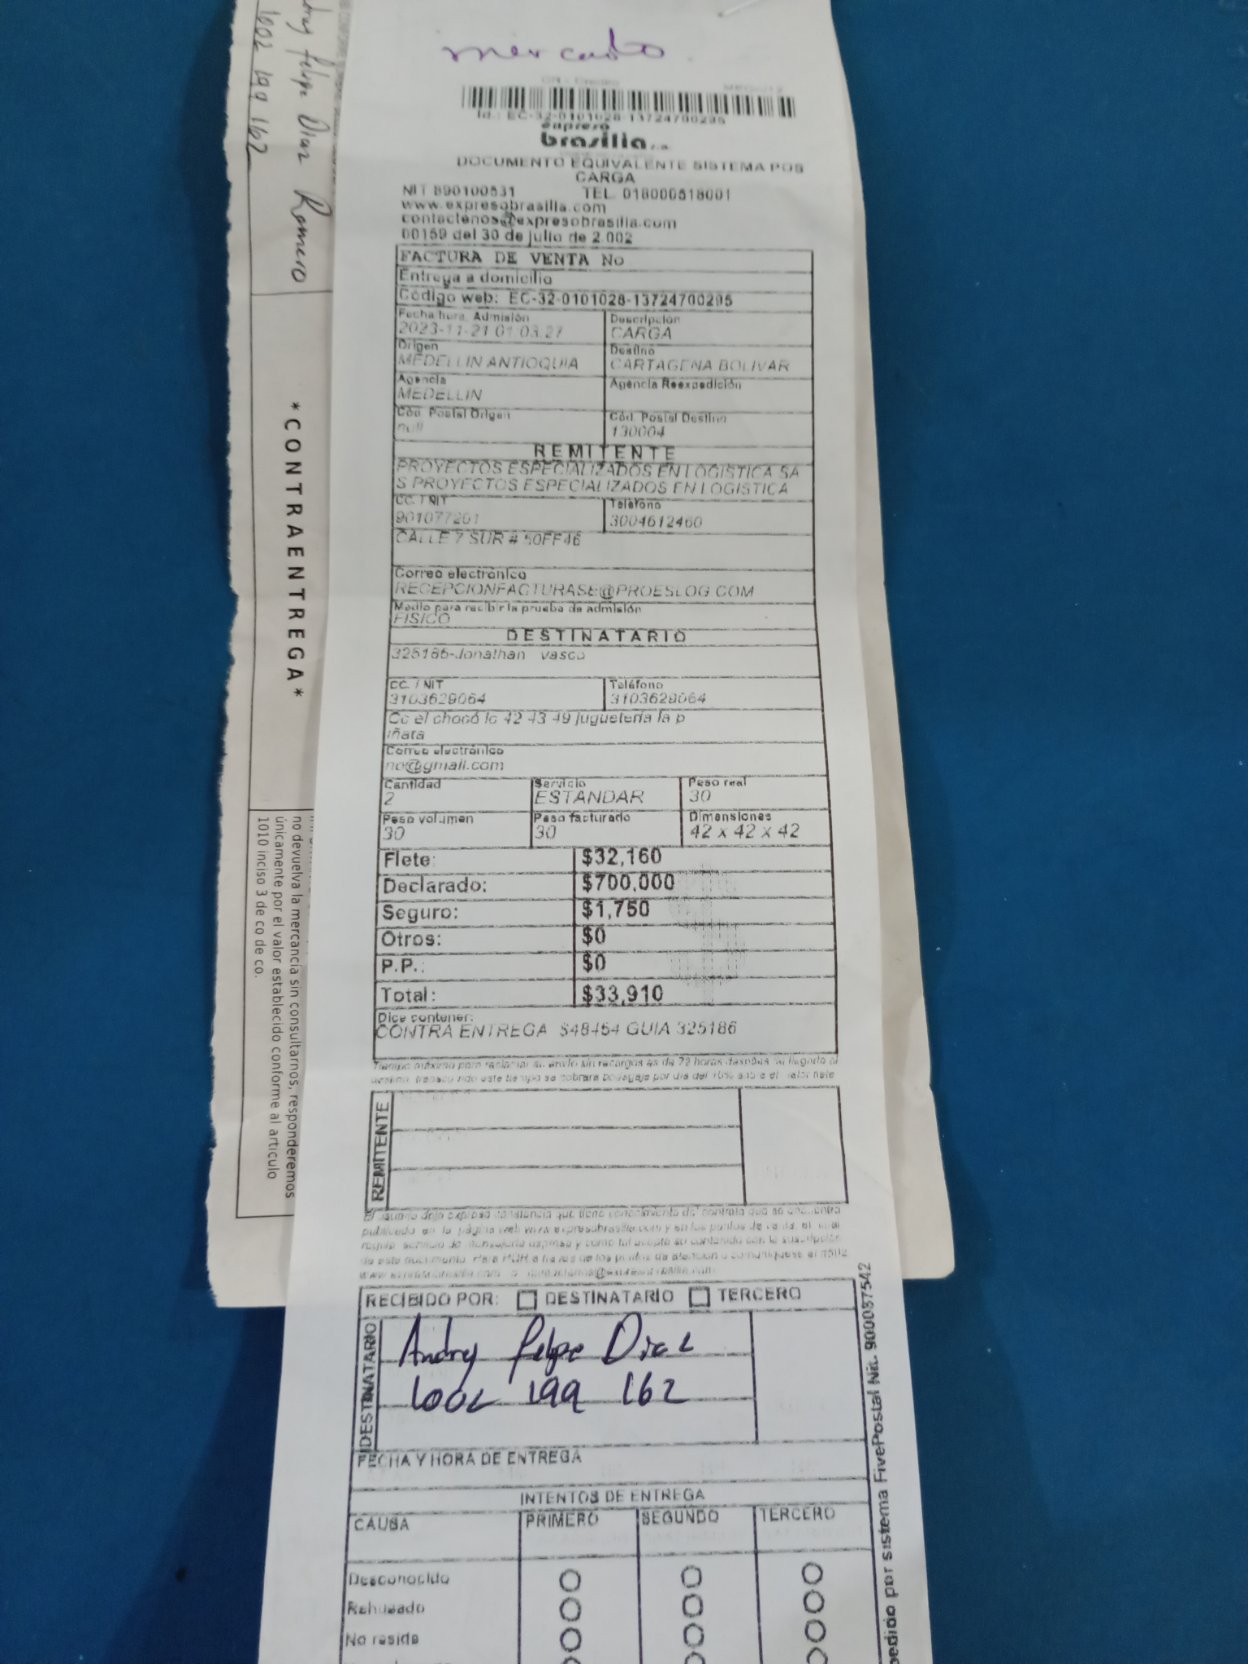 mercado
Id.: EC-32-0101028-13724700295
expreso
brasilia s.a.
DOCUMENTO EQUIVALENTE SISTEMA POS
CARGA
NIT 890100531 TEL. 018000518001
www.expresobrasilia.com
contactenos@expresobrasilia.com
00159 del 30 de julio de 2.002
FACTURA DE VENTA No
Entrega a domicilio
Código web: EC-32-0101028-13724700295
Fecha hora. Admisión Descripción
2023-11-21 01:03:27 CARGA
Origen Destino
MEDELLIN ANTIOQUIA CARTAGENA BOLIVAR
Agencia Agencia Reexpedición
MEDELLIN
Cód. Postal Origen Cód. Postal Destino
null 130004
REMITENTE
PROYECTOS ESPECIALIZADOS EN LOGISTICA SA
S PROYECTOS ESPECIALIZADOS EN LOGISTICA
CC. / NIT Teléfono
901077261 3004612460
CALLE 7 SUR # 50FF46
Correo electrónico
RECEPCIONFACTURASE@PROESLOG.COM
Medio para recibir la prueba de admisión
FISICO
DESTINATARIO
325186-Jonathan vasco
CC. / NIT Teléfono
3103629064 3103629064
Cc el chocó lc 42 43 49 jugueteria la p
iñata
Correo electrónico
no@gmail.com
Cantidad Servicio Peso real
2 ESTANDAR 30
Peso volumen Peso facturado Dimensiones
30 30 42 x 42 x 42
Flete: $32,160
Declarado: $700,000
Seguro: $1,750
Otros: $0
P.P.: $0
Total: $33,910
Dice contener:
CONTRA ENTREGA $48464 GUIA 325186
REMITENTE
RECIBIDO POR: DESTINATARIO TERCERO
DESTINATARIO
Andry Felipe Diaz
1002 199 162
FECHA Y HORA DE ENTREGA
INTENTOS DE ENTREGA
CAUSA PRIMERO SEGUNDO TERCERO
Desconocido
Rehusado
No reside
pedido por sistema FivePostal Nit. 900087542
Felipe Diaz Romero
1002 199 162
*CONTRAENTREGA*
no devuelva la mercancia sin consultarnos, responderemos
únicamente por el valor establecido conforme al articulo
1010 inciso 3 de co de co.